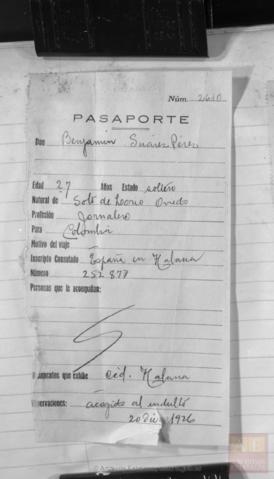 Núm. 2610
PASAPORTE
Don Benjamin Suárez Pérez
Edad 27 Años Estado soltero
Natural de Soto de Oviedo
Profesión Jornalero
Para Colombia
Motivo del viaje
Inscripto Consulado España en Habana
Número 252877
Personas que la acompañan:
que exhibe Céd. Habana
acogido al indulto
20 Dic 1926